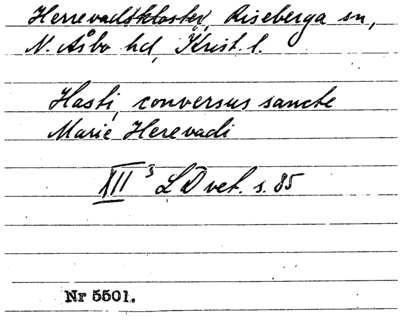 Herrevadskloster, Riseberga sn,
N. Åsbo hd, Krist. l.
Hasti, conversus sancte
Marie Herevadi
XII 3 LD vet. s. 85
Nr 5501.